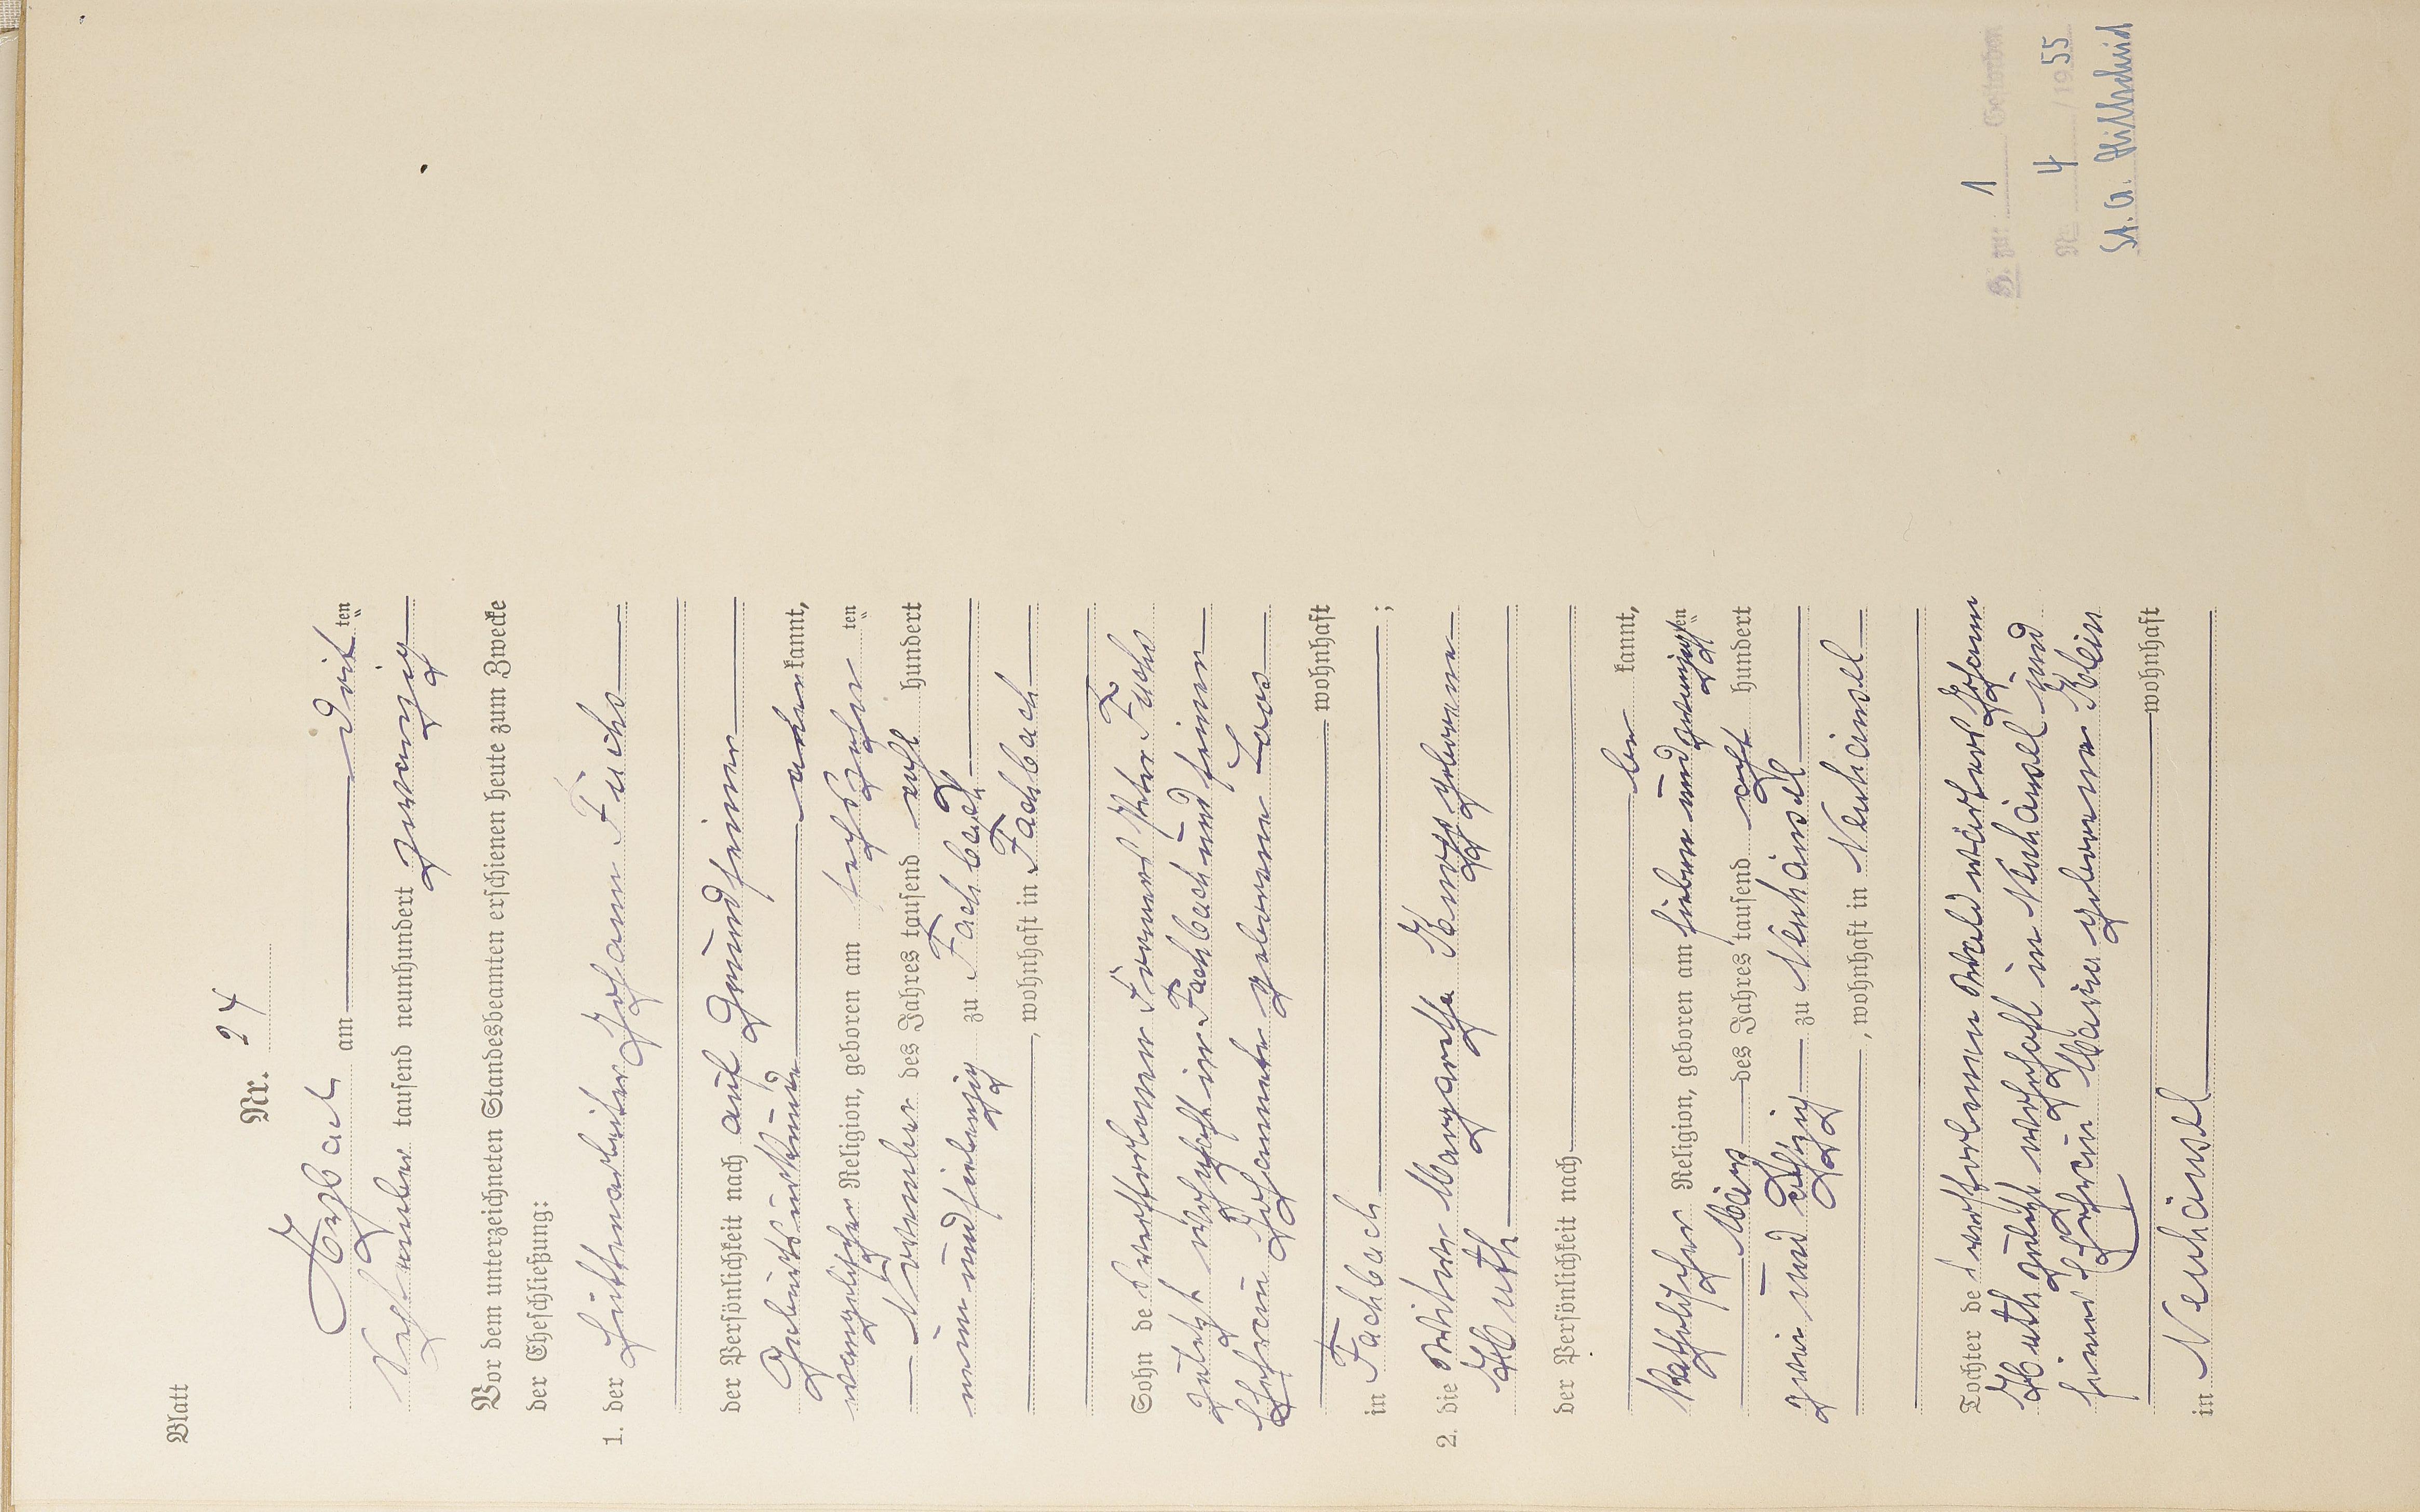 Blatt
Nr. 24
Arzbach am drit ten
September tausend neunhundert zwanzig
Vor dem unterzeichneten Standesbeamten erschienen heute zum Zwecke
der Eheschließung:
1. der Hüttenarbeiter Johann Fuchs
der Persönlichkeit nach auf Grund seiner
Geburtsurkunde anerkannt,
evangelischer Religion, geboren am sechszehn ten
November des Jahres tausend acht hundert
neunundsiebenzig zu Fachbach
, wohnhaft in Fachbach
Sohn des verstorbenen Formers Peter Fuchs
zuletzt wohnhaft in Fachbach und seiner
Ehefrau Johannette geborene Laos
wohnhaft
in Fachbach ;
2. die Witwe Margaretha Knopp geborene
Huth
der Persönlichkeit nach
be kannt,
katholischer Religion, geboren am sieben und zwanzigsten
März des Jahres tausend acht hundert
zwei und achtzig zu Neuhäusel
, wohnhaft in Neuhäusel
Tochter des verstorbenen Waldwärters Johann
Huth zuletzt wohnhaft in Neuhäusel und
seiner Ehefrau Maria geborene Klein
wohnhaft
in Neuhäusel
H. zu: 1 Gestorben
Nr. 4 /1955
St.A. Hillscheid